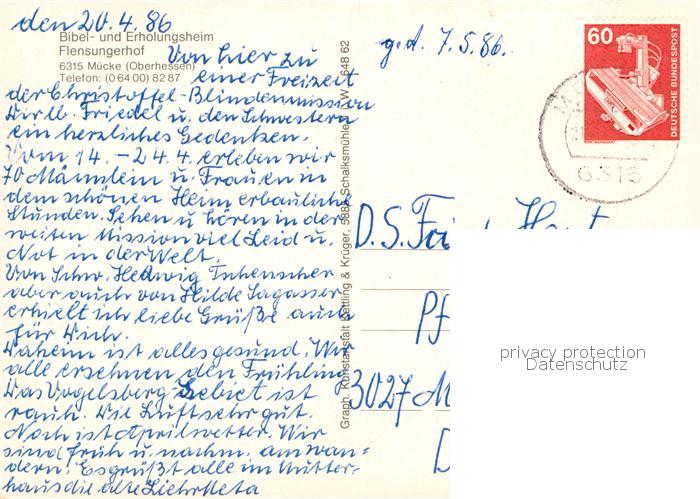 den 20.4.86
Bibel- und Erholungsheim
Flensungerhof
6315 Mücke (Oberhessen)
Telefon: (0 64 00) 82 87
Von hier zu
einer Freizeit
der Christoffel-Blindenmission
Dir lb. Friedel u. den Schwestern
ein herzliches Gedenken.
Vom 14. - 24.4. erleben wir
70 Männlein u. Frauen in
dem schönen Heim erbauliche
Stunden. Sehen u hören in der
weiten Mission viel Leid u.
Not in der Welt.
Von Schw. Hedwig Tschenscher
aber auch von Hilde Sagasser
erhielt ich liebe Grüße auch
für Dich.
Daheim ist alles gesund. Wir
alle ersehnen den Frühling
Das Vogelsberg-Gebiet ist
rauh. Die Luft sehr gut.
Noch ist Aprilwetter. Wir
sind früh u. nachm. am wan-
dern. Es grüßt alle im Mutter-
haus die alte Meta
Graph. Kunstanstalt Dettling & Krüger, 5882 Schalksmühle W 648 62
ged. 7.5.86.
60
DEUTSCHE BUNDESPOST
6315
D. S.
Pf
3027 M
D
privacy protection
Datenschutz